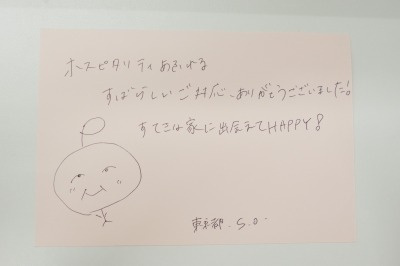 ホスピタリティあふれる
すばらしいご対応、ありがとうございました!
すてきな家に出会えてHAPPY!
東京都 S.O.